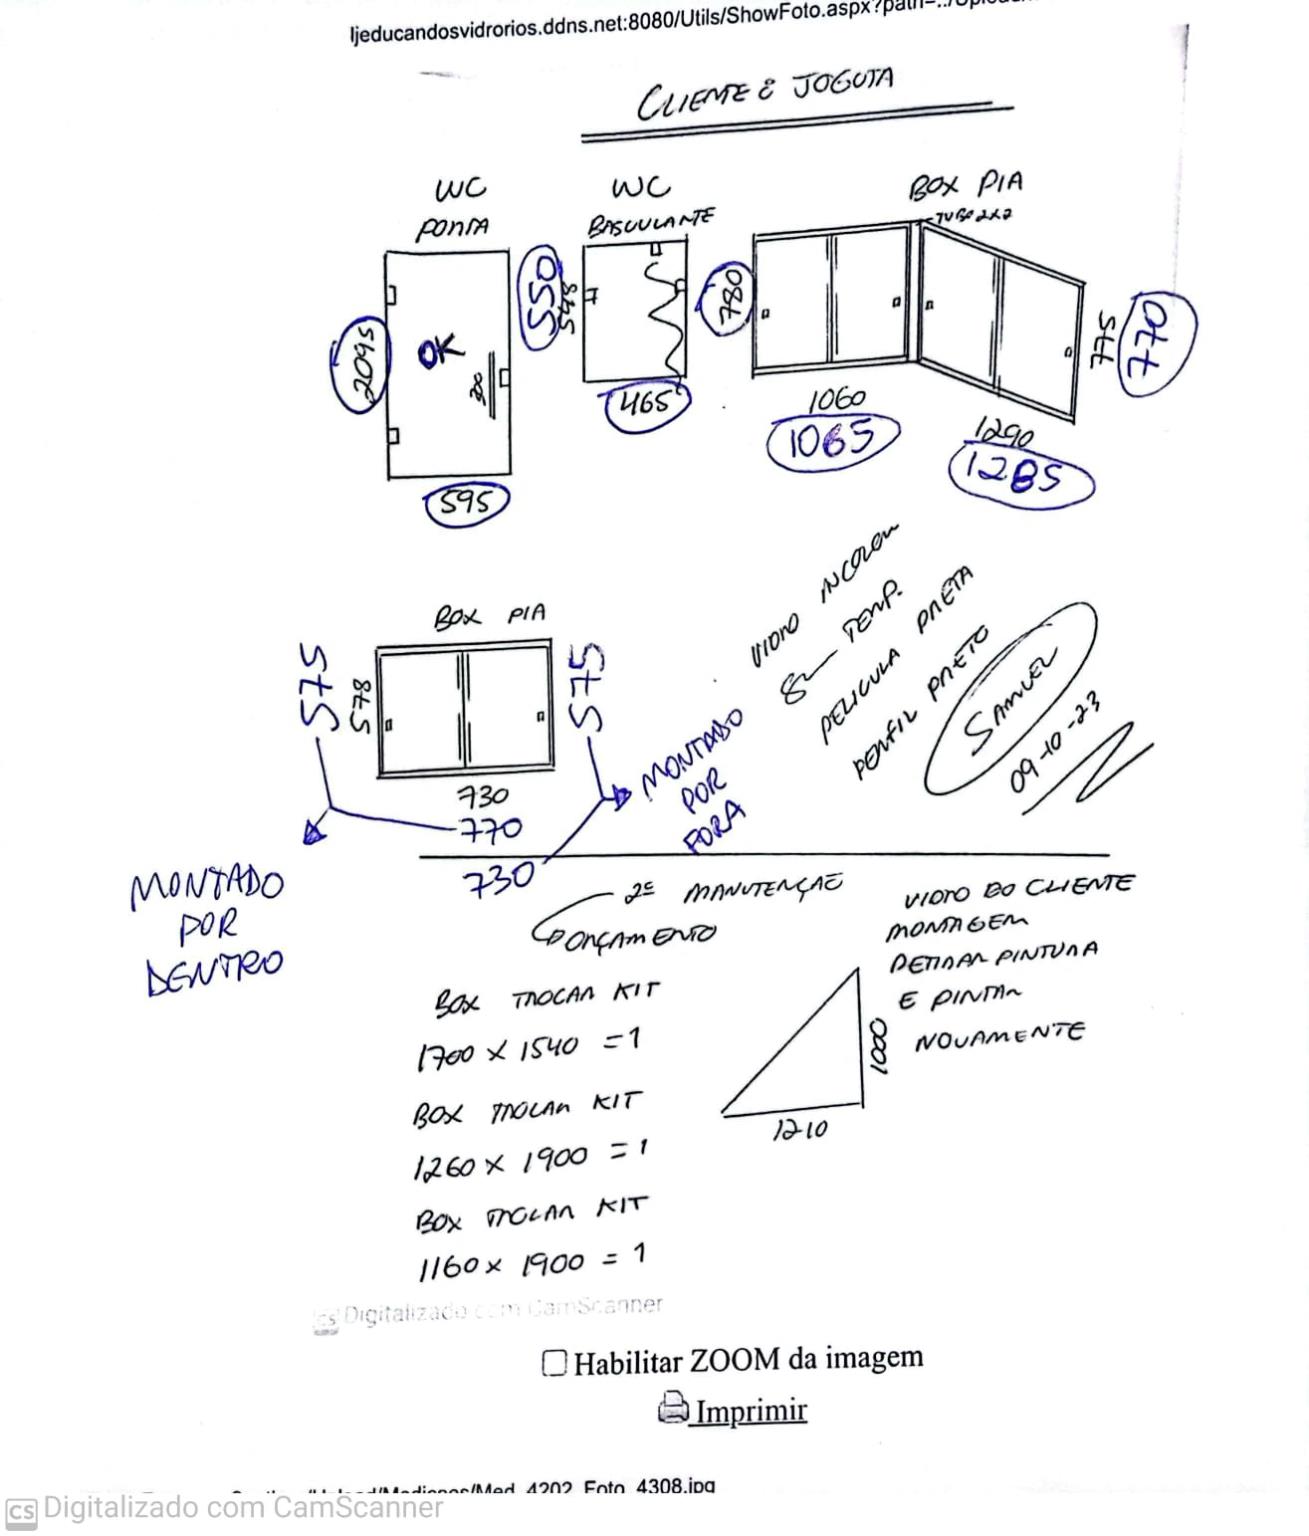 ljeducandosvidrorios.ddns.net:8080/Utils/ShowFoto.aspx?path=../
CLIENTE : JOGUTA
WC
PORTA
2095
OK
300
595
WC
BASCULANTE
550
545
465
BOX PIA
TUBO 2X2
780
1060
1065
1290
1285
775
770
BOX PIA
575
578
575
730
770
730
MONTADO
POR
DENTRO
MONTADO
POR
FORA
VIDRO INCOLOR
8 TEMP.
PELICULA PRETA
PERFIL PRETO
SAMUEL
09-10-23
2º MANUTENÇÃO
ORÇAMENTO
BOX TROCAR KIT
1700 X 1540 = 1
BOX TROCAR KIT
1260 X 1900 = 1
BOX TROCAR KIT
1160 x 1900 = 1
VIDRO DO CLIENTE
MONTAGEM
RETIRAR PINTURA
E PINTAR
NOVAMENTE
1000
1210
cs Digitalizado com CamScanner
Habilitar ZOOM da imagem
Imprimir
/Med_4202_Foto_4308.jpg
CS Digitalizado com CamScanner